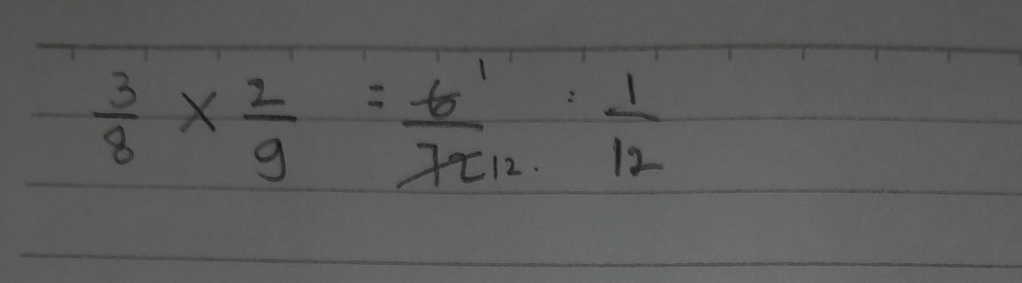 3/8 × 2/9 = 6 1/72 12. : 1/12